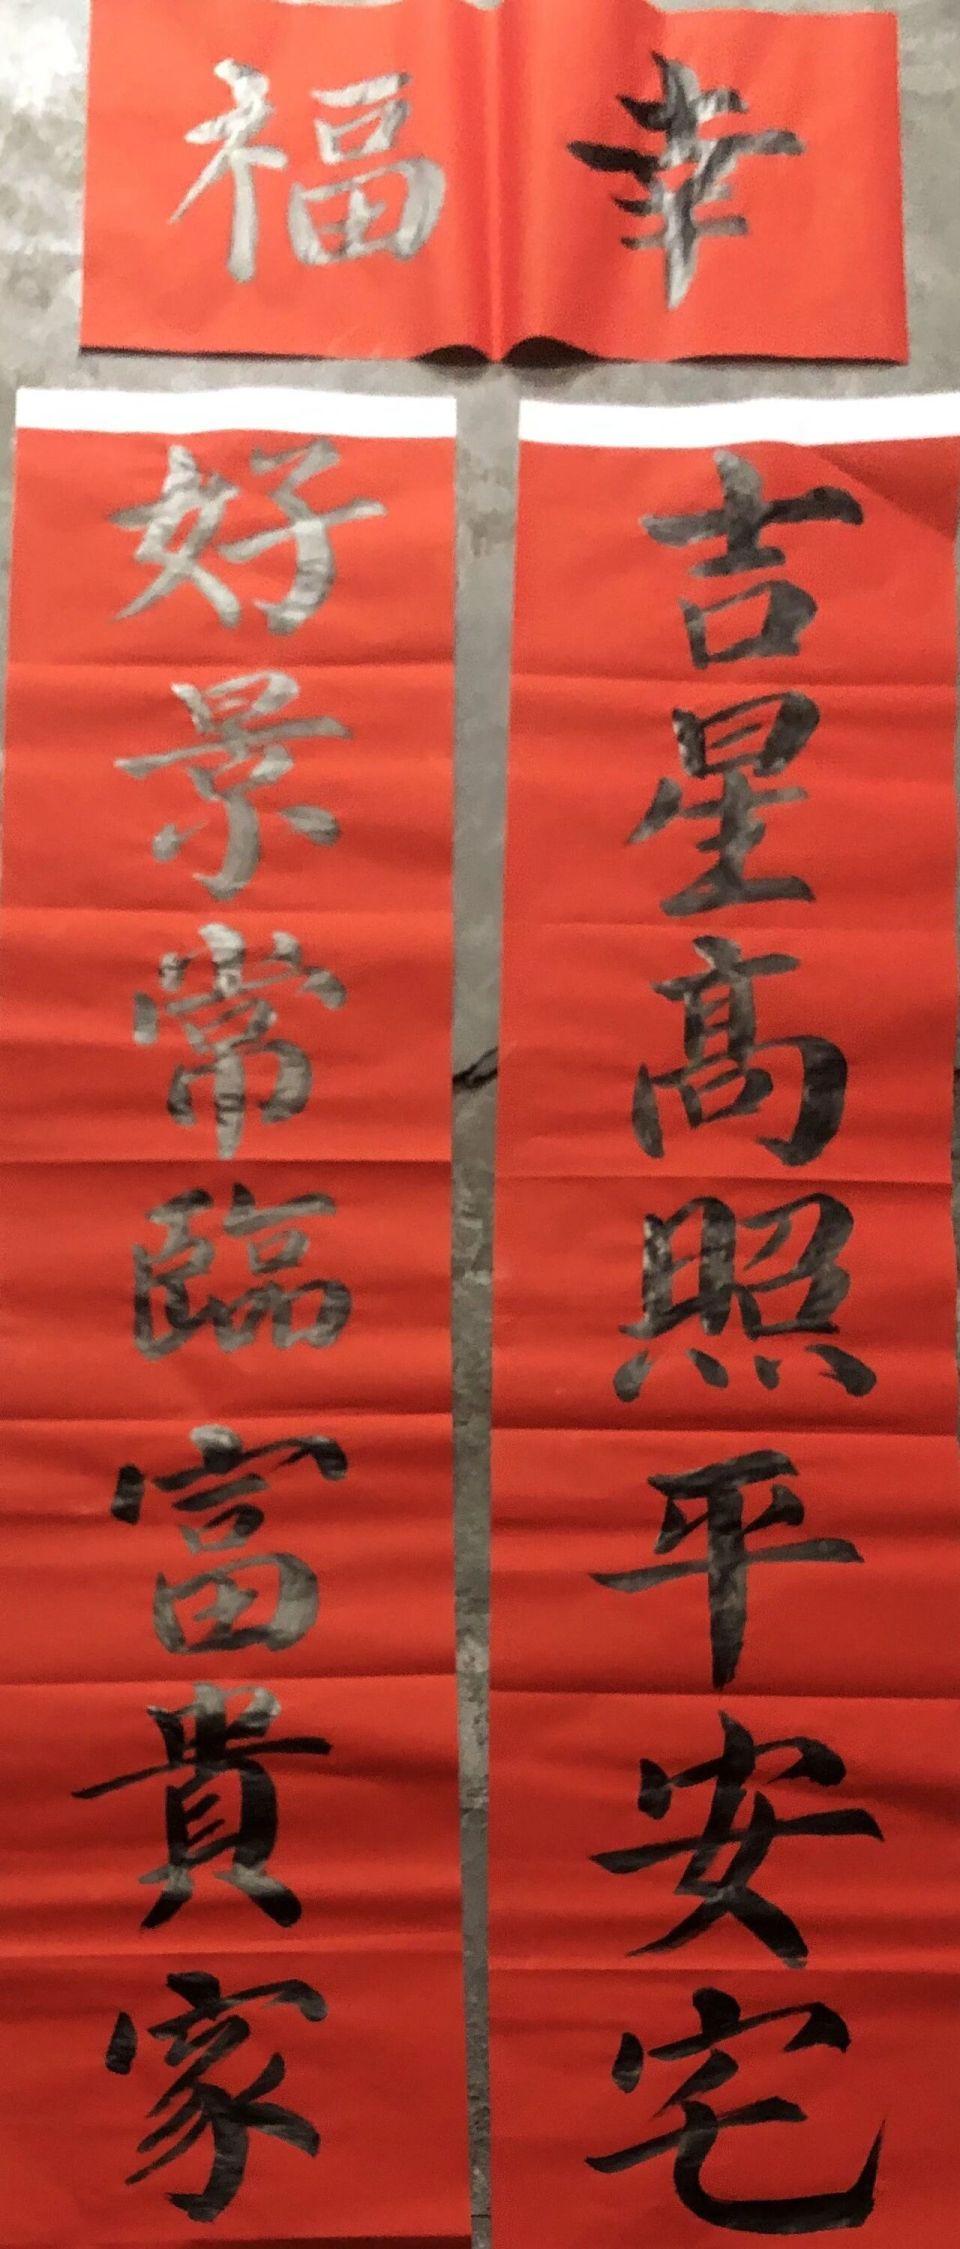 幸福
吉星高照平安宅
好景常臨富貴家